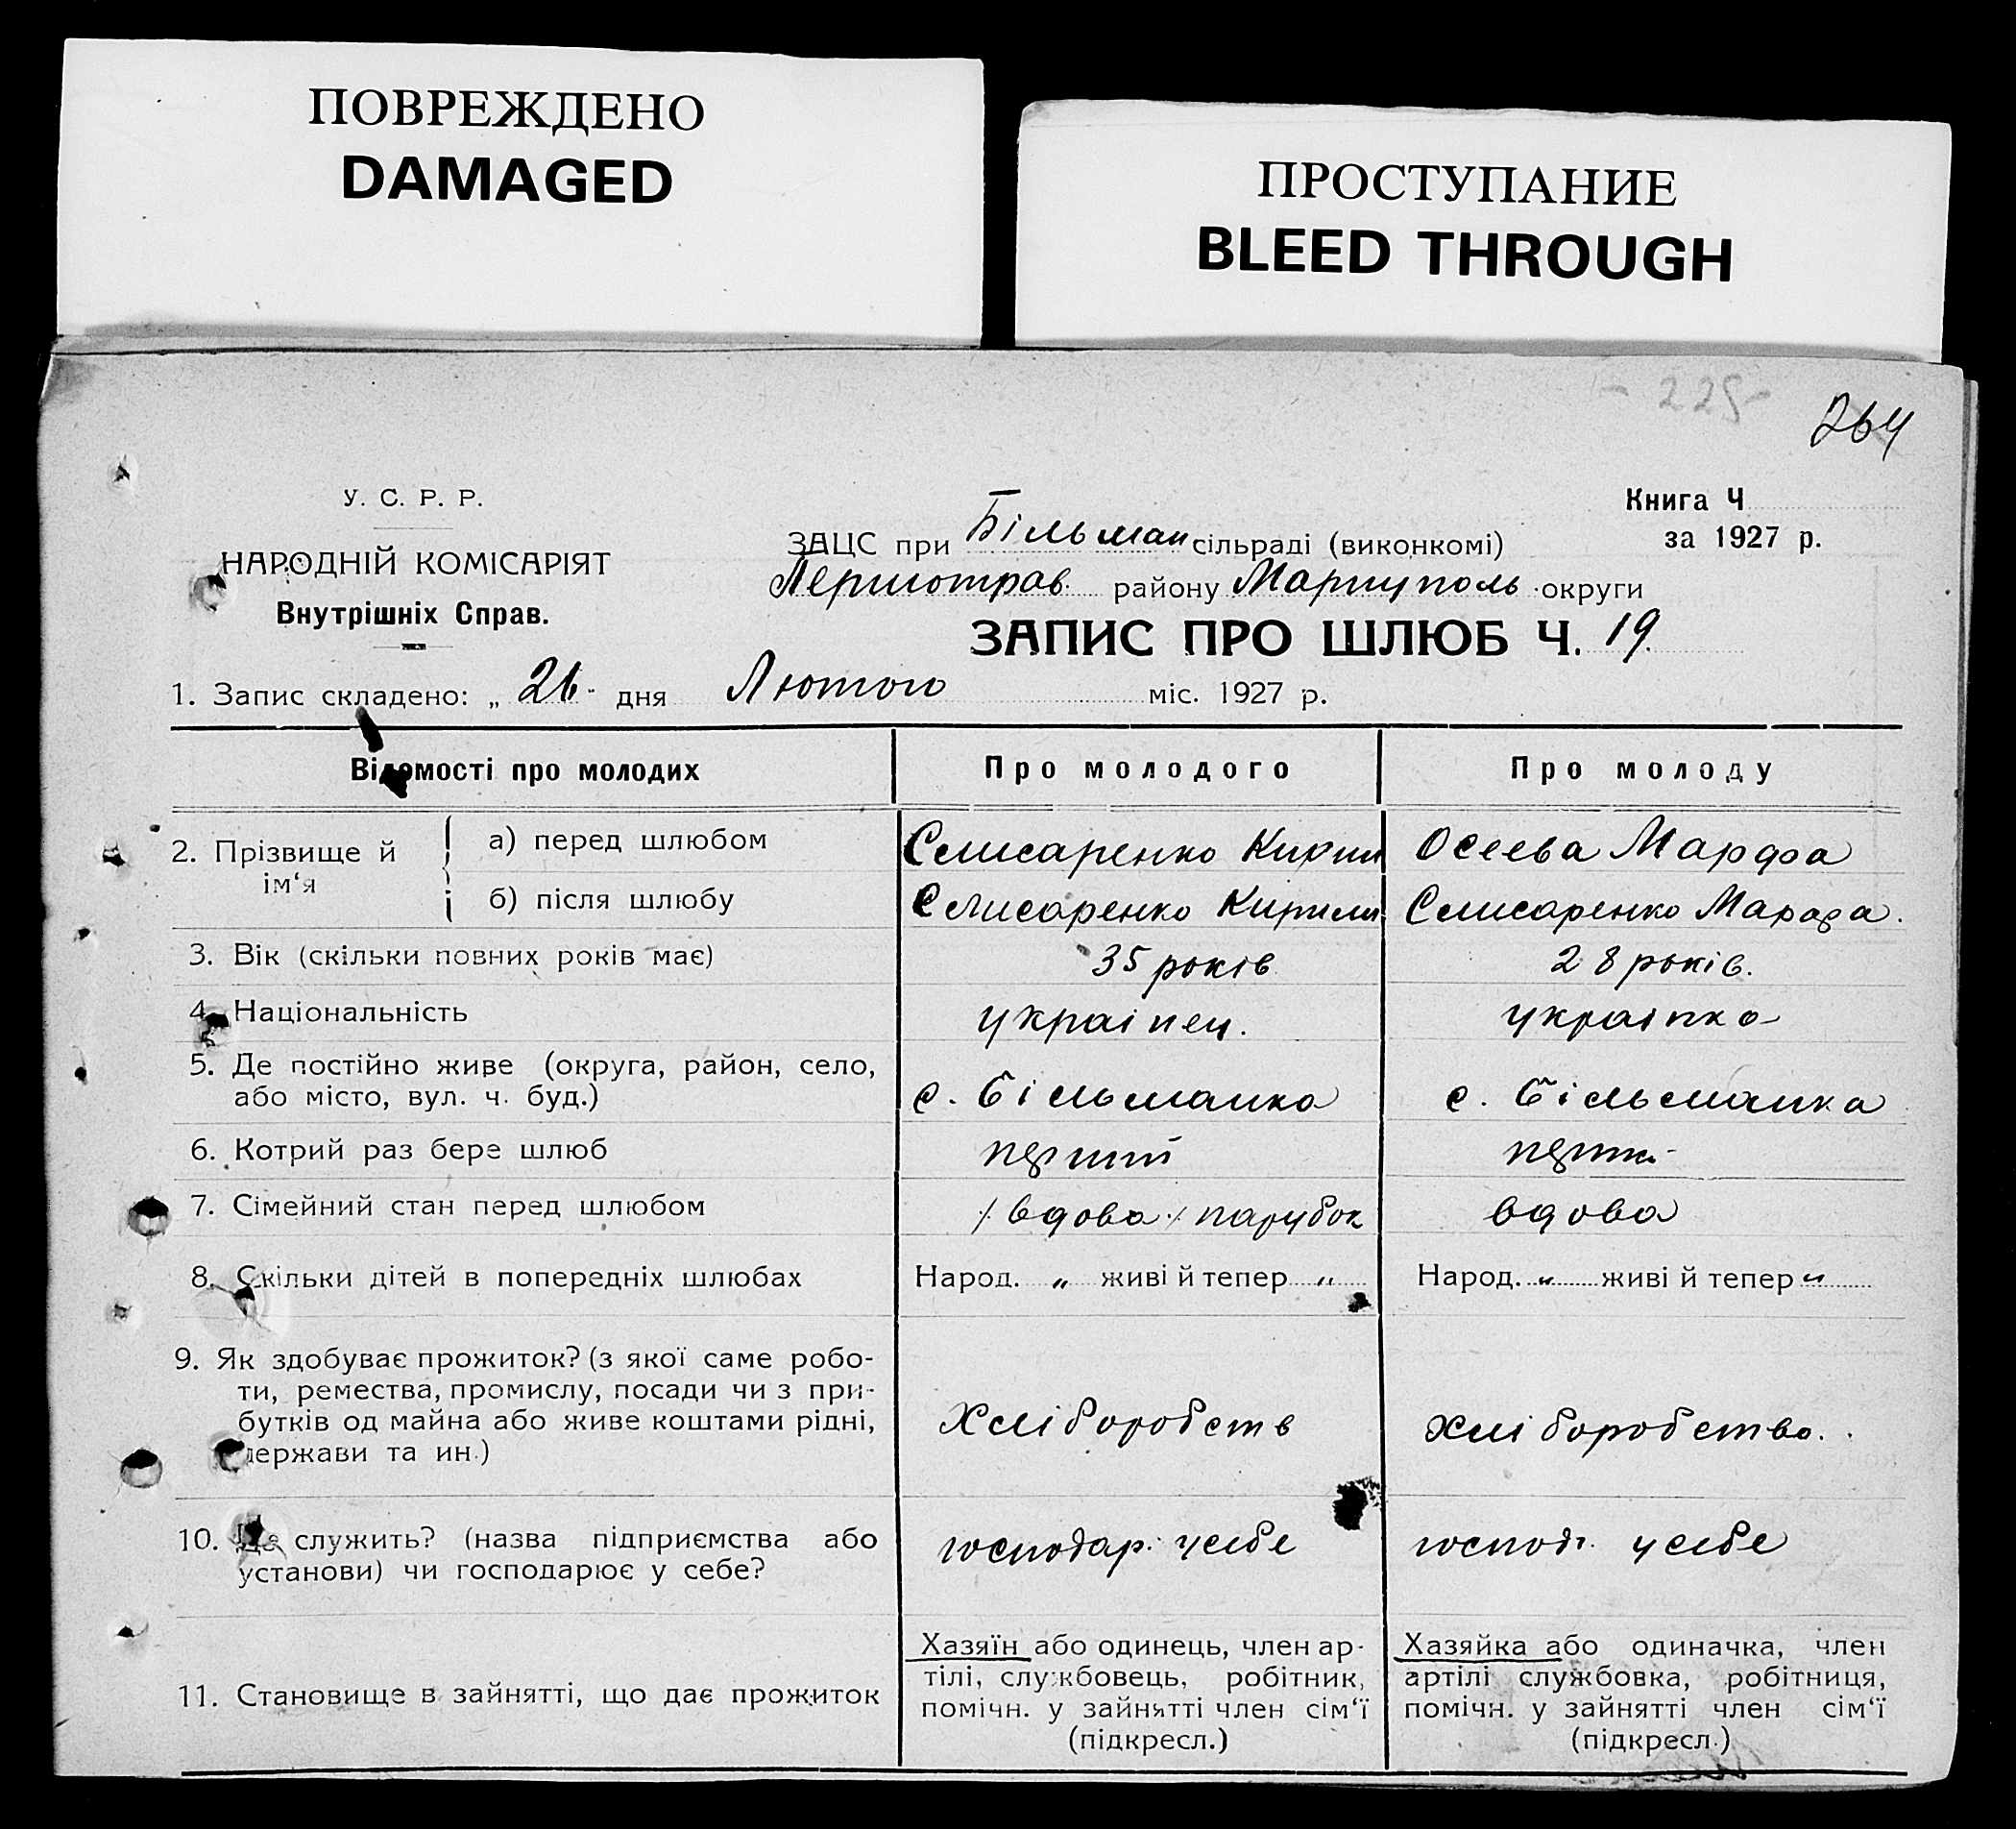 ПОВРЕЖДЕНО
DAMAGED
ПРОСТУПАНИЕ
BLEED THROUGH
- 225-
264
У. С. Р. Р.
НАРОДНІЙ КОМІСАРІЯТ
Внутрішніх Справ.
Книга Ч
за 1927 р.
ЗАЦС при Більман сільраді (виконкомі)
Першотрав. району Маріуполь округи
ЗАПИС ПРО ШЛЮБ Ч. 19.
1. Запис складено: „ 26 дня Лютого міс. 1927 р.
Відомості про молодих
Про молодого
Про молоду
2. Прізвище й ім‘я
а) перед шлюбом
Слисаренко Кирил
Осеева Марфа
б) після шлюбу
Слисаренко Кирили
Слисаренко Марфа.
3. Вік (скільки повних років має)
35 років
28 років.
4. Національність
українец.
українка
5. Де постійно живе (округа, район, село,
або місто, вул. ч. буд.)
с. Більманка
с. Більманка
6. Котрий раз бере шлюб
перший
7. Сімейний стан перед шлюбом
/. вдова ./ парубок
вдова
8. Скільки дітей в попередніх шлюбах
Народ. „ живі й тепер „
Народ. „ живі й тепер „
9. Як здобуває прожиток? (з якої саме робо-
ти, ремества, промислу, посади чи з при-
бутків од майна або живе коштами рідні,
держави та ин.)
Хліборобств
хліборобство.
10. Де служить? (назва підприємства або
установи) чи господарює у себе?
господар. у себе
господ. у себе
11. Становище в зайнятті, що дає прожиток
Хазяїн або одинець, член ар-
тілі, службовець, робітник,
помічн. у зайнятті член сім‘ї
(підкресл.)
Хазяйка або одиначка, член
артілі службовка, робітниця,
помічн. у зайнятті член сім‘ї
(підкресл.)